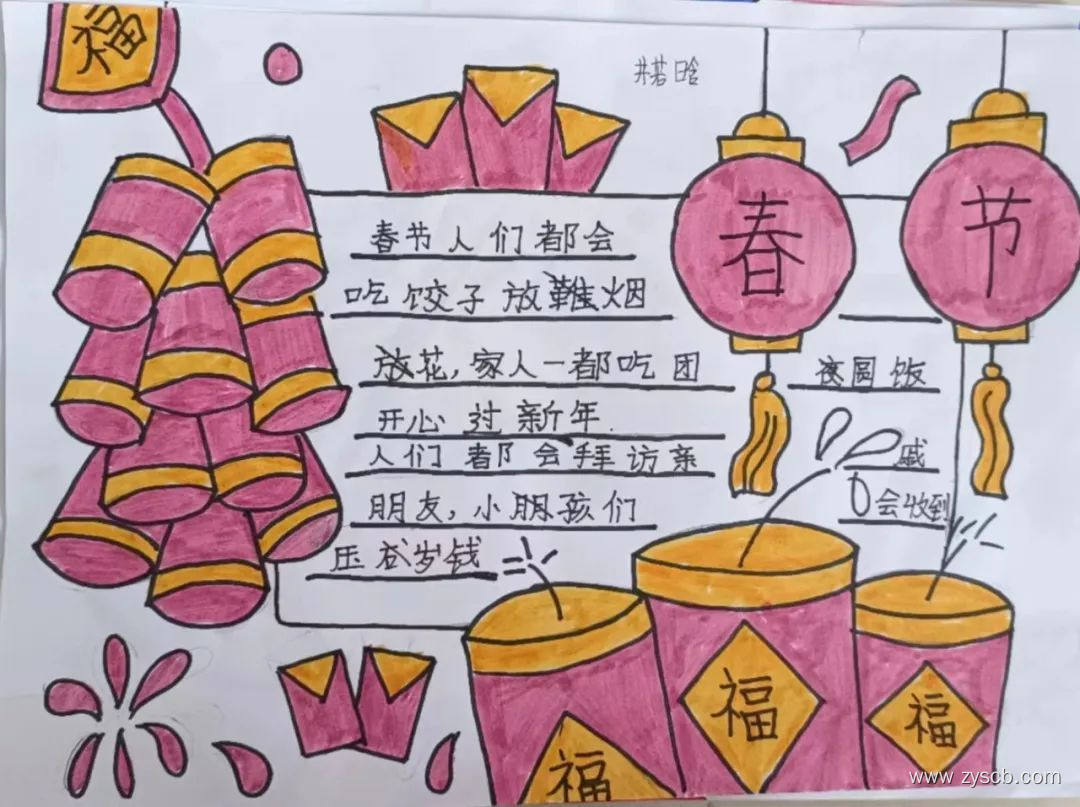 福
井若晗
春节
春节人们都会
吃饺子放烟
放花,家人一都吃团 夜圆饭
开心过新年.
人们都会拜访亲 戚
朋友,小朋孩们 会收到
压岁钱
福
福
福
www.zyscb.com